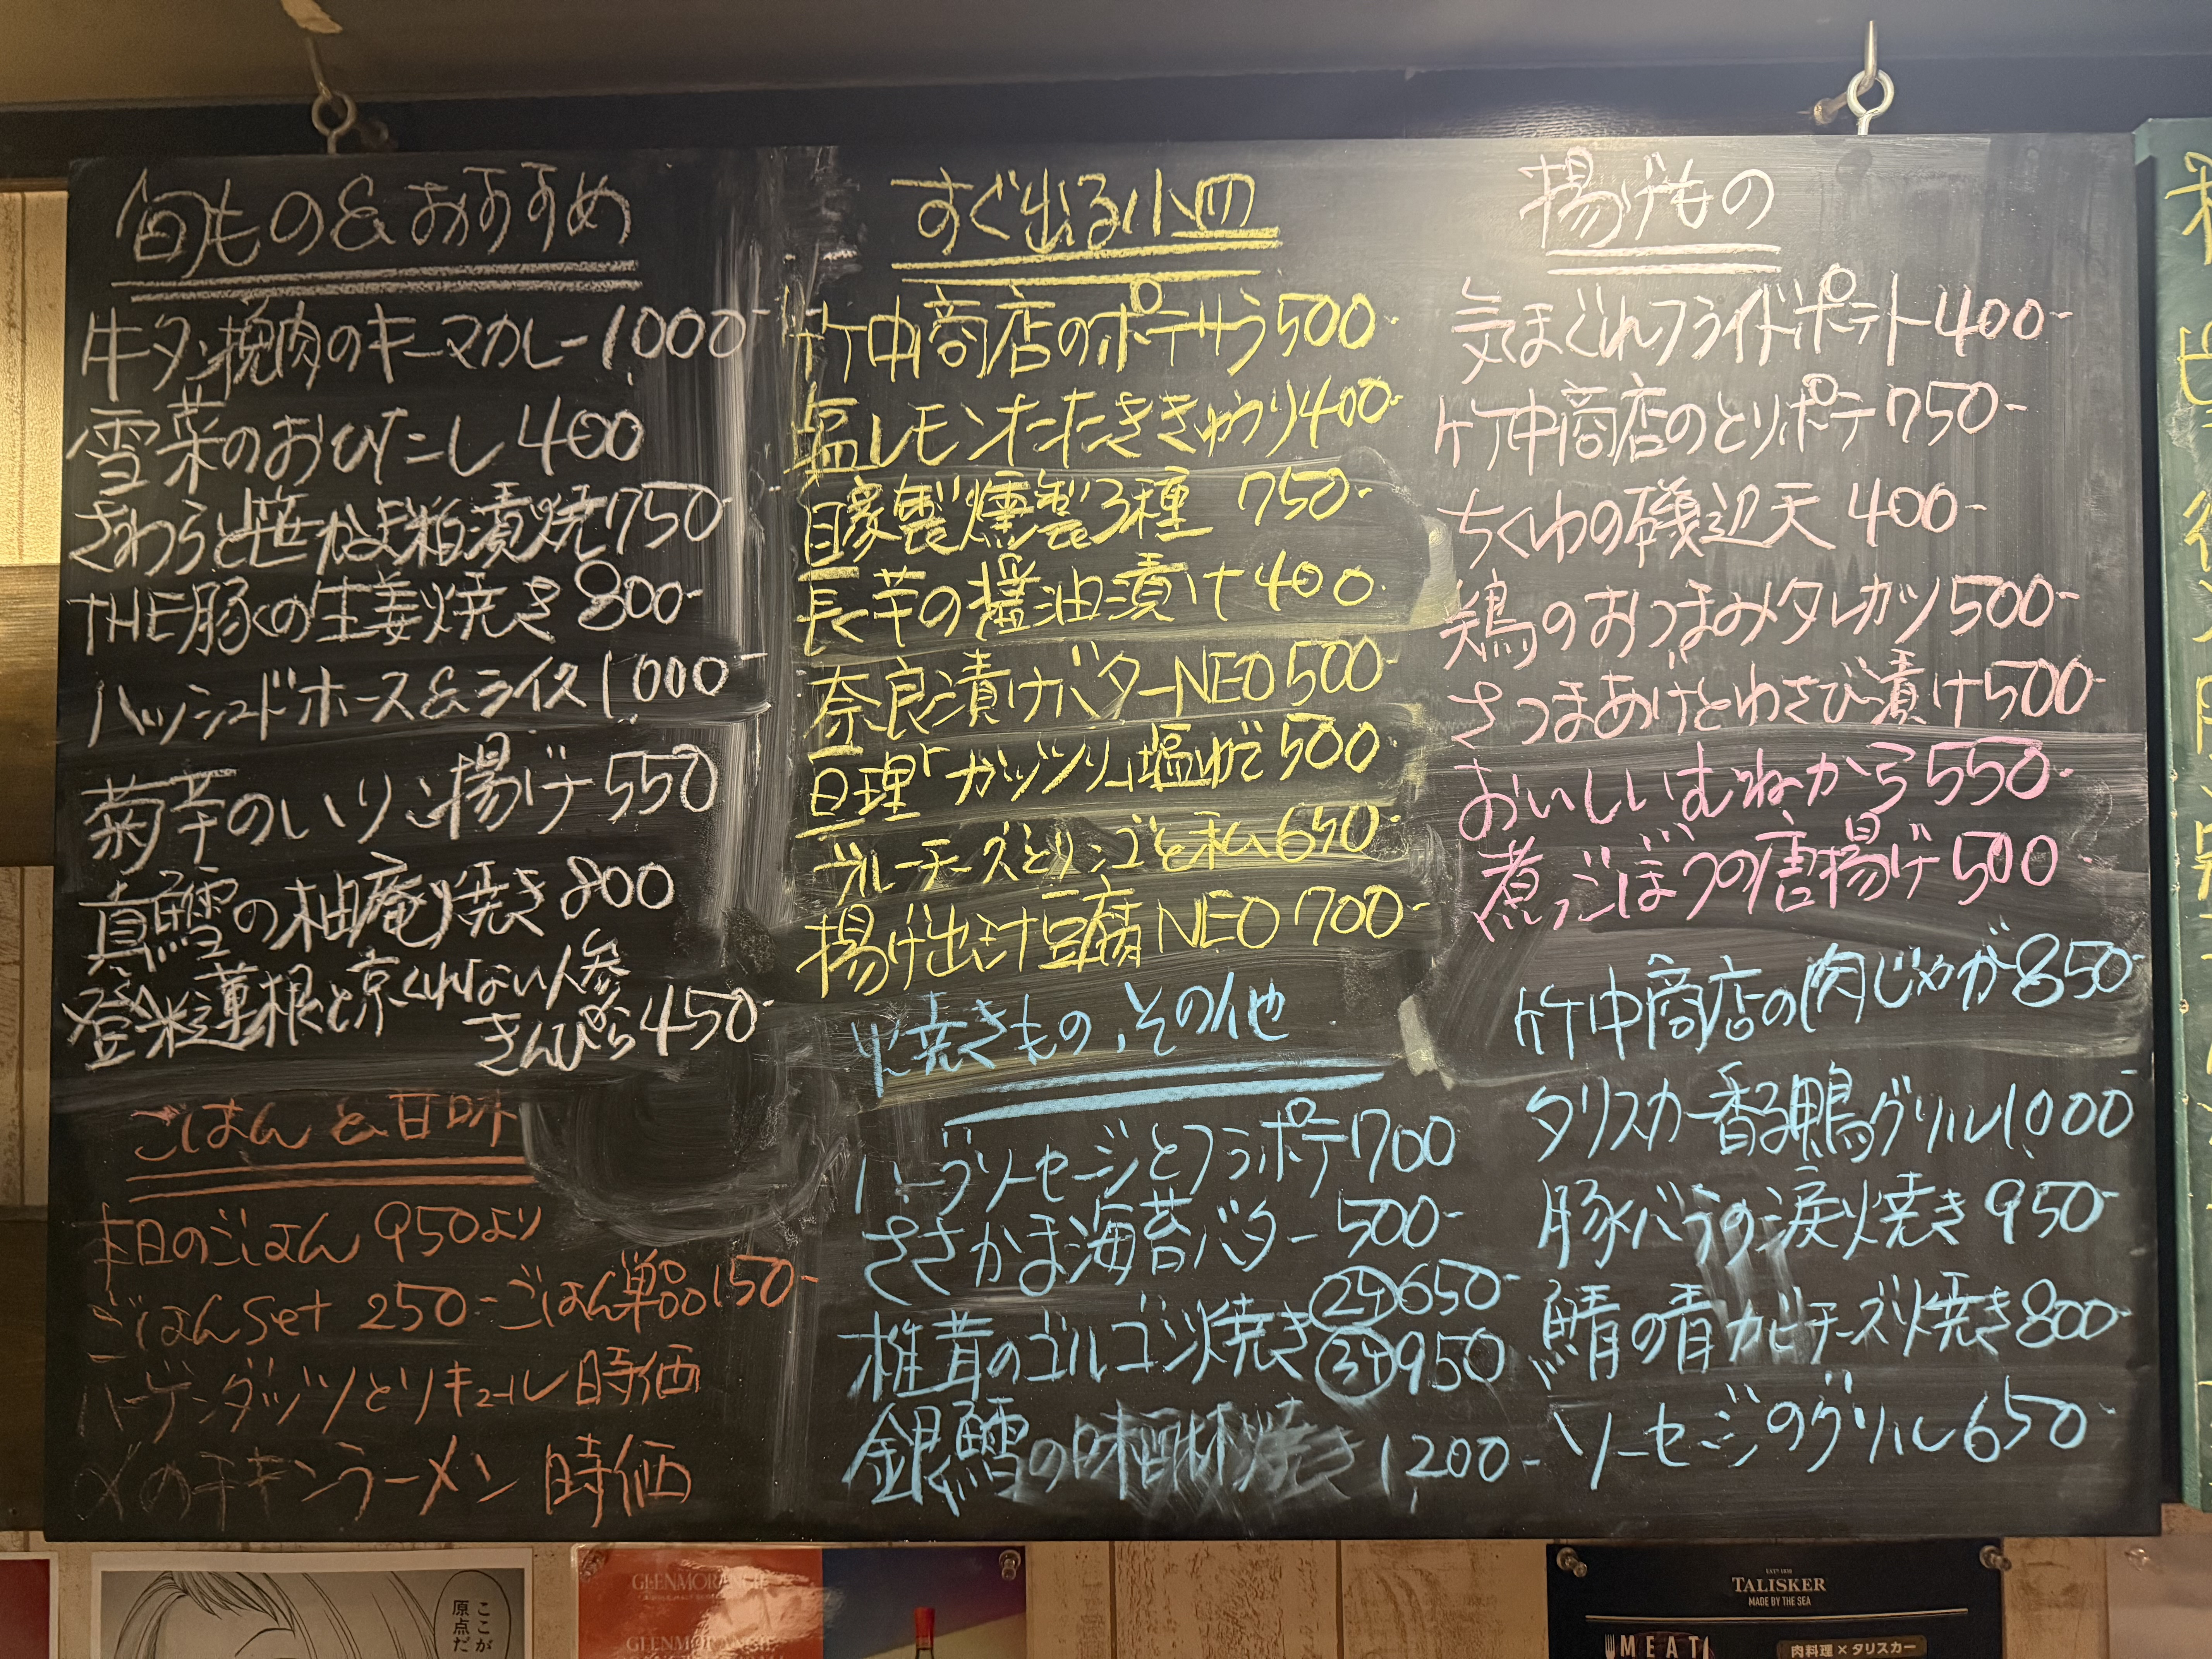 旬もの&おすすめ
牛タン挽肉のキーマカレー 1000-
雪菜のおひたし 400
さわらと笹かま粕漬焼 750-
THE豚くの生姜焼き 800-
ハッシュドホース&ライス 1000-
菊芋のいりこ揚げ 550
真鱈の柚庵焼き 800
登米蓮根と京くれない人参
きんぴら 450-
ごはん&甘味
本日のごはん 950より
ごはんset 250-ごはん単品150-
ハーゲンダッツとリキュール 時価
〆のチキンラーメン 時価
すぐ出る小皿
竹中商店のポテサラ 500-
塩レモンたたききゅうり 400-
自家製燻製3種 750-
長芋の醤油漬け 400
奈良漬けバターNEO 500-
亘理「ガッツリ」塩ゆで 500
ブルーチーズとリンゴと私 650-
揚げ出し豆腐NEO 700-
焼きもの、その他
ハーブソーセージとフラポテ 700
ささかま海苔バター 500-
椎茸のゴルゴンゾ焼き 2ケ 650-
3ケ 950
銀鱈の味醂焼き 1200-
揚げもの
気まぐれフライドポテト 400-
竹中商店のとりポテ 750-
ちくわの磯辺天 400-
鶏のおつまみタレカツ 500-
さつまあげとわさび漬け 500-
おいしいむねから 550-
煮ごぼうの唐揚げ 500-
竹中商店の肉じゃが 850-
タリスカー香る鴨グリル 1000-
豚バラの炭焼き 950-
鯖の青カビチーズ焼き 800-
ソーセージのグリル 650-
ここが
原点だ
GLENMORANGIE
GLENMORANGIE
TALISKER
MADE BY THE SEA
MEAT
肉料理×タリスカー